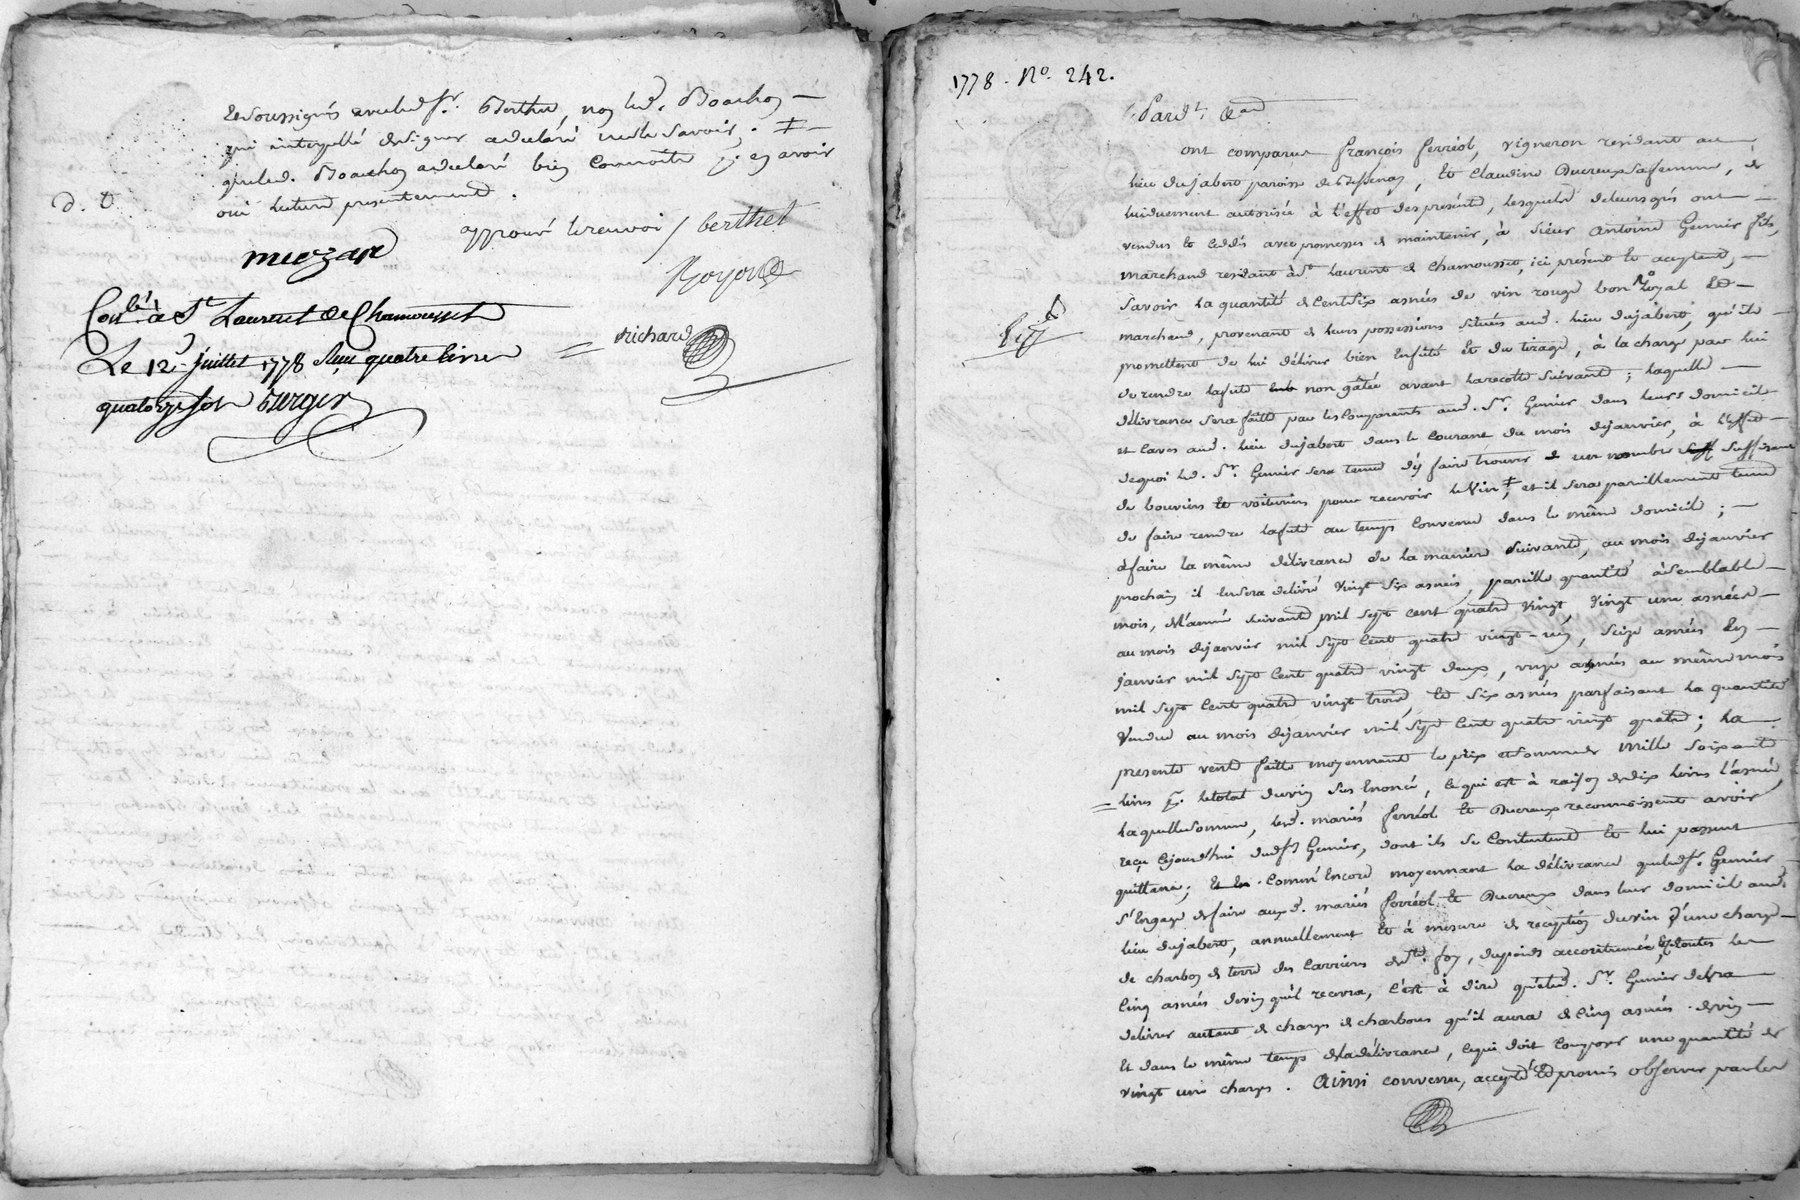 et soussignés avec led. sr. Berthet, non led. Boachon
qui interpellé de signer a declaré ne le savoir ; ‡
que led. Boachon a declaré bien connoitre pr. en avoir
oui lecture presentement.
d. d.
approuvé le renvoi / berthet
miozan
Royou
Conlé à St Laurent de Chamousset
richard
Le 12. juillet 1778 Reçu quatre livres
quatorze sol Burger
1778. No. 242.
Pardt. &ca
ont comparus françois ferréol, vigneron residant au
lieu dujabert paroisse de Bessenay, et Claudine Ducreux sa femme, de
lui duement autorisée à l'effet des présentes, lesquels de leurs grés ont
vendus et cedés avec promesses de maintenir, à sieur antoine Genier fils,
marchand residant à St Laurent de Chamousset, ici présent et acceptant,
Savoir la quantité de cent six asnées de vin rouge bon loyal et
marchand, provenant de leurs possessions situées aud. lieu dujabert, qu'ils
promettent de lui délivrer bien enfuté et du tirage, à la charge par lui
de rendre la futé non gâtée avant la recolte suivante ; laquelle
délivrance sera faitte par les comparants aud. Sr. Genier dans leurs domicile
et caves aud. lieu dujabert dans le courant du mois de janvier, à l'effet
de quoi led. Sr. Genier sera tenu d'y faire trouver un nombre suffisant
de bouviers et voituriers pour recevoir le vin ‡, et il sera pareillement tenu
de faire rendre la futé au temps convenu dans le même domicile ;
à faire la même délivrance de la maniere suivante, au mois de janvier
prochain il en sera délivré vingt six asnées, pareille quantité à semblable
mois, de l'année suivante mil sept cent quatre vingt, vingt une asnées
au mois de janvier mil sept cent quatre vingt-un, seize asnées en
janvier mil sept cent quatre vingt deux, onze asnées au même mois
mil sept cent quatre vingt trois, et six asnées parfaisant la quantité
vendue au mois de janvier mil sept cent quatre vingt quatre ; la
presente vente faitte moyennant le prix et somme de mille soixante
livres pr. le total du vin sus énoncé, ce qui est à raison de dix livres l'asnée,
laquelle somme, lesd. mariés ferréol et Ducreux reconnoissent avoir
reçu cejourd'hui dud. sr Genier, dont ils se contentent et lui passent
quittance ; comme encore moyennant la délivrance que led. sr. Genier
s'engage de faire auxd. mariés ferréol et Ducreux dans leur domicile aud.
lieu dujabert, annuellement et à mesure de reception du vin d'une charge
de charbon de terre des carrieres de Ste. foy, du poids accoutumée, toutes les
cinq asnées de vin qu'il recevra, c'est à dire que led. Sr. Genier devra
delivrer autant de charges de charbons qu'il aura de cinq asnées de vin
et dans le même temps de la délivrance, ce qui doit composer une quantité de
vingt une charges. Ainsi convenu, accepté et promis observer par les